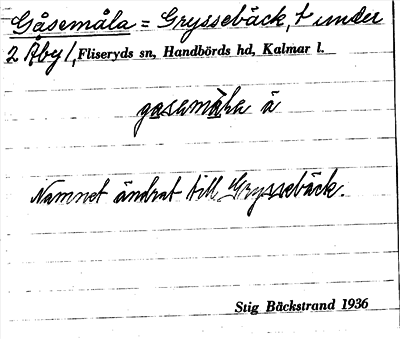 Gåsemåla = Gryssebäck, t under
2 Åby 1, Fliseryds sn, Handbörds hd, Kalmar l.
gasamåla ä
Namnet ändrat till Gryssebäck.
Stig Bäckstrand 1936